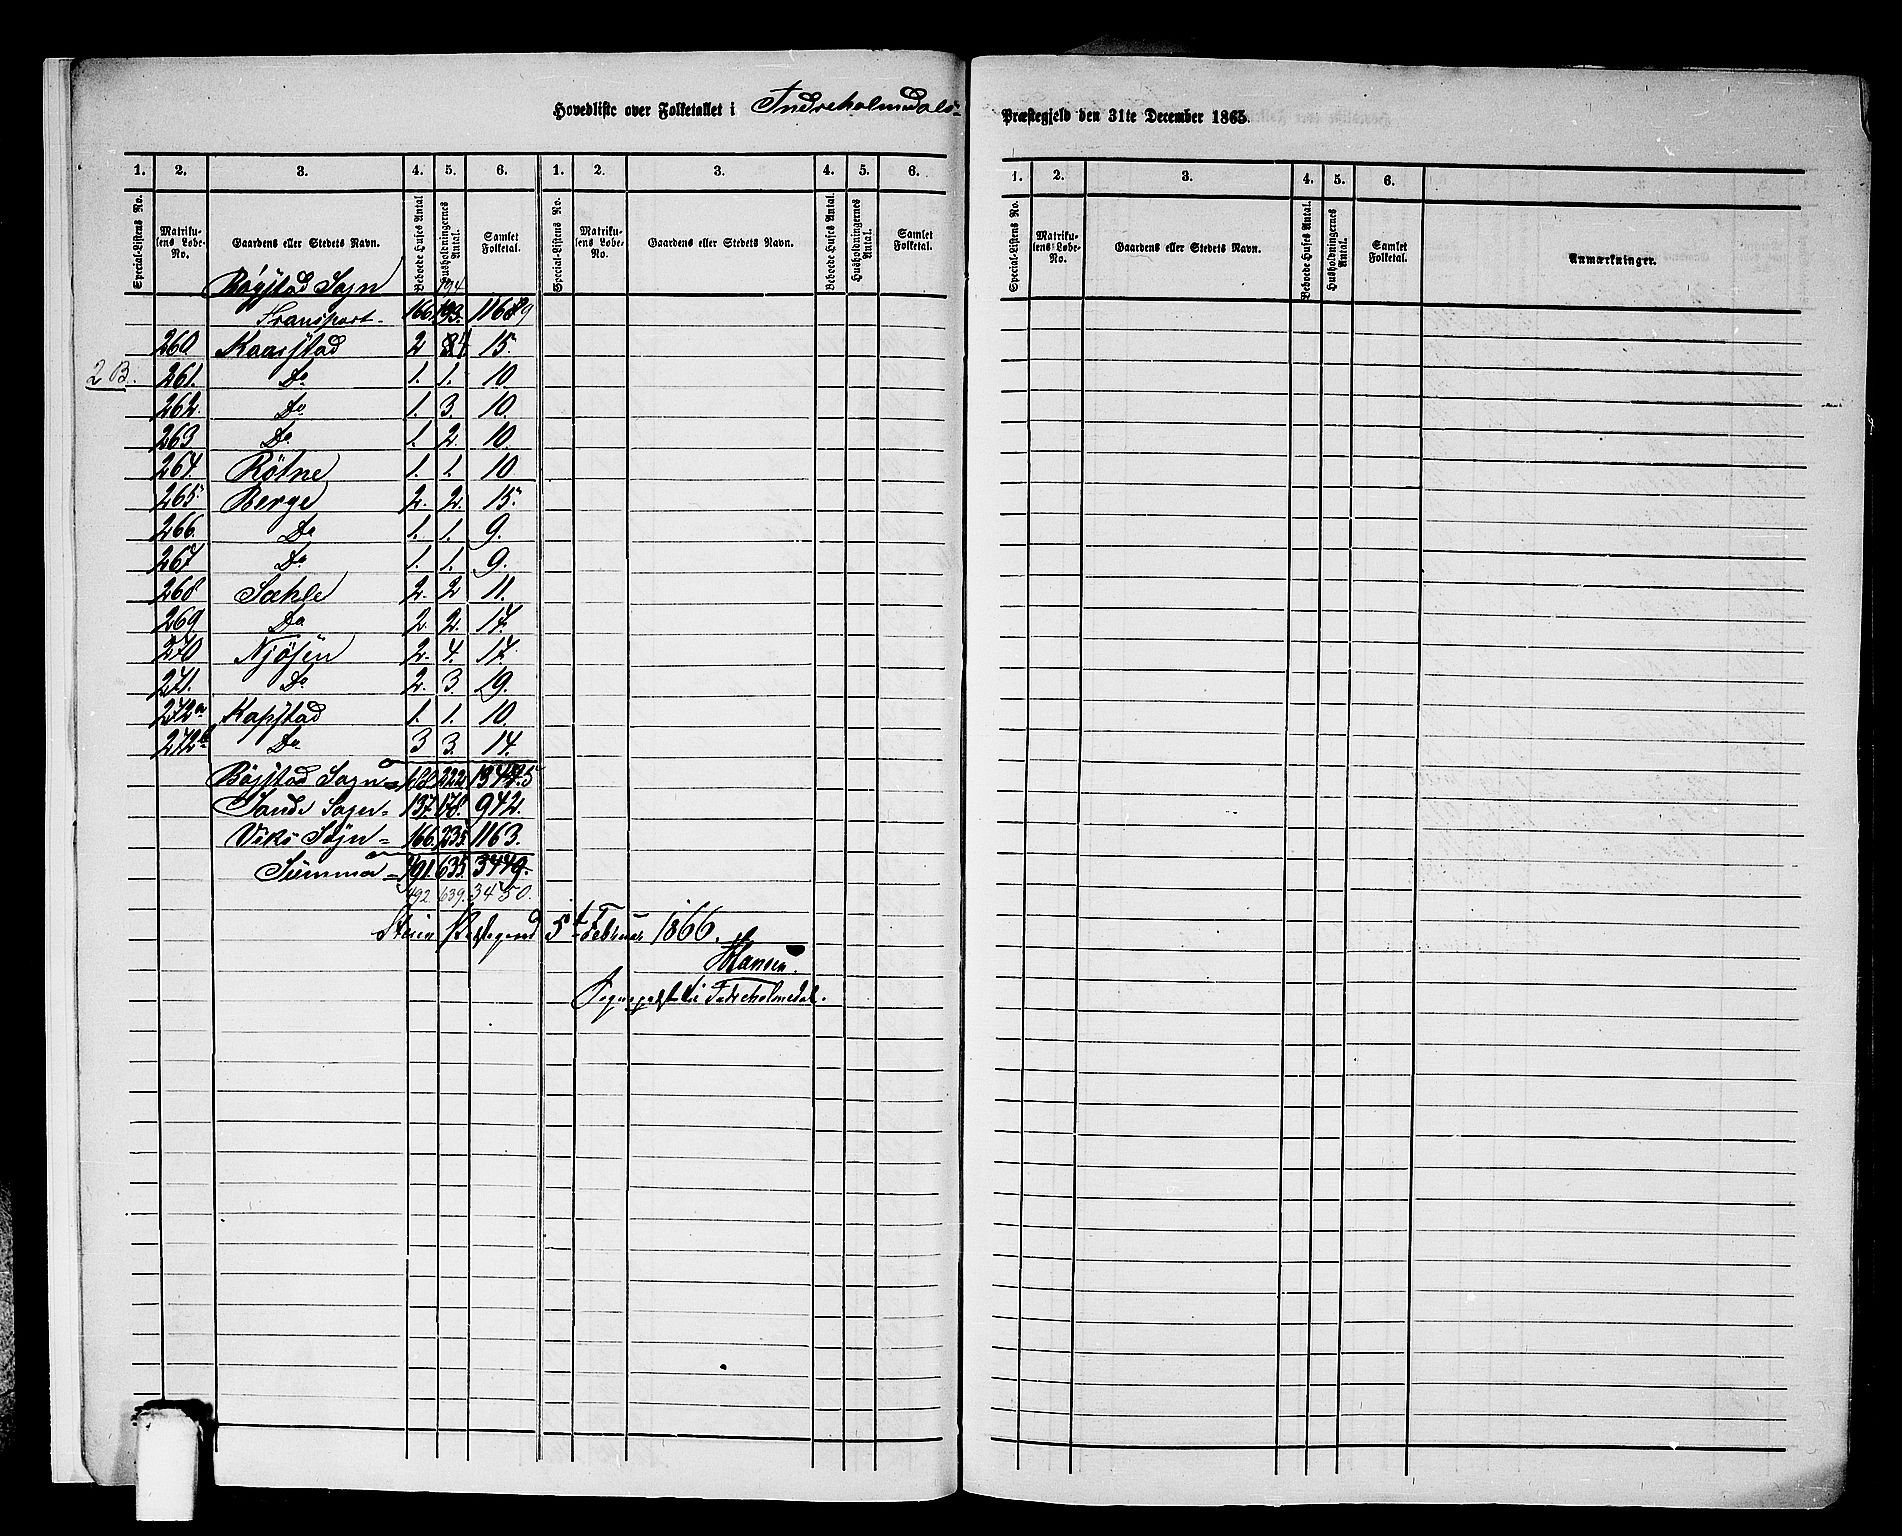 Hovedliste over Folketallet i Indreholmedals- Præstegjeld den 31te December 1865.
1. 2. 3. 4. 5. 6. 1. 2. 3. 4. 5. 6. 1. 2. 3. 4. 5. 6.
Special-Listens No. Matrikulens Løbe-No. Gaardens eller Stedets Navn. Beboede Huses Antal Husholdningernes Antal. Samlet Folketal. Special-Listens No. Matrikulens Løbe-No. Gaardens eller Stedets Navn. Beboede Huses Antal. Husholdningernes Antal. Samlet Folketal. Special-Listens No. Matrikulens Løbe-No. Gaardens eller Stedets Navn. Beboede Huses Antal. Husholdningernes Antal. Samlet Folketal. Anmærkninger.
Bøgstad Sogn 194
Transport- 166. 193. 1168 9
260 Kaasstad 2 4 15.
2 B. 261. Do 1. 1. 10.
262. Do 1. 3. 10.
263 Do 1. 2. 10.
264. Røtne 1. 1. 10
265. Berge 2. 2. 15.
266. Do 1. 1. 9.
267 Do 1. 1. 9.
268 Sæhle 2. 2 11.
269 Do 2. 2. 17.
270 Njøsen 2. 4. 17.
271. Do 2. 3. 19.
272a Kapstad 1. 1. 10.
272b Do 3 3. 14.
Bøgstad Sogn= 188. 222 134 5
Sande Sogn- 137. 178. 942.
Viks Sogn- 166. 235. 1163.
Summa= 491. 635. 3449.
492. 639. 3450.
5t Februar 1866.
Hansen.
Sognepræst til Indreholmedal.